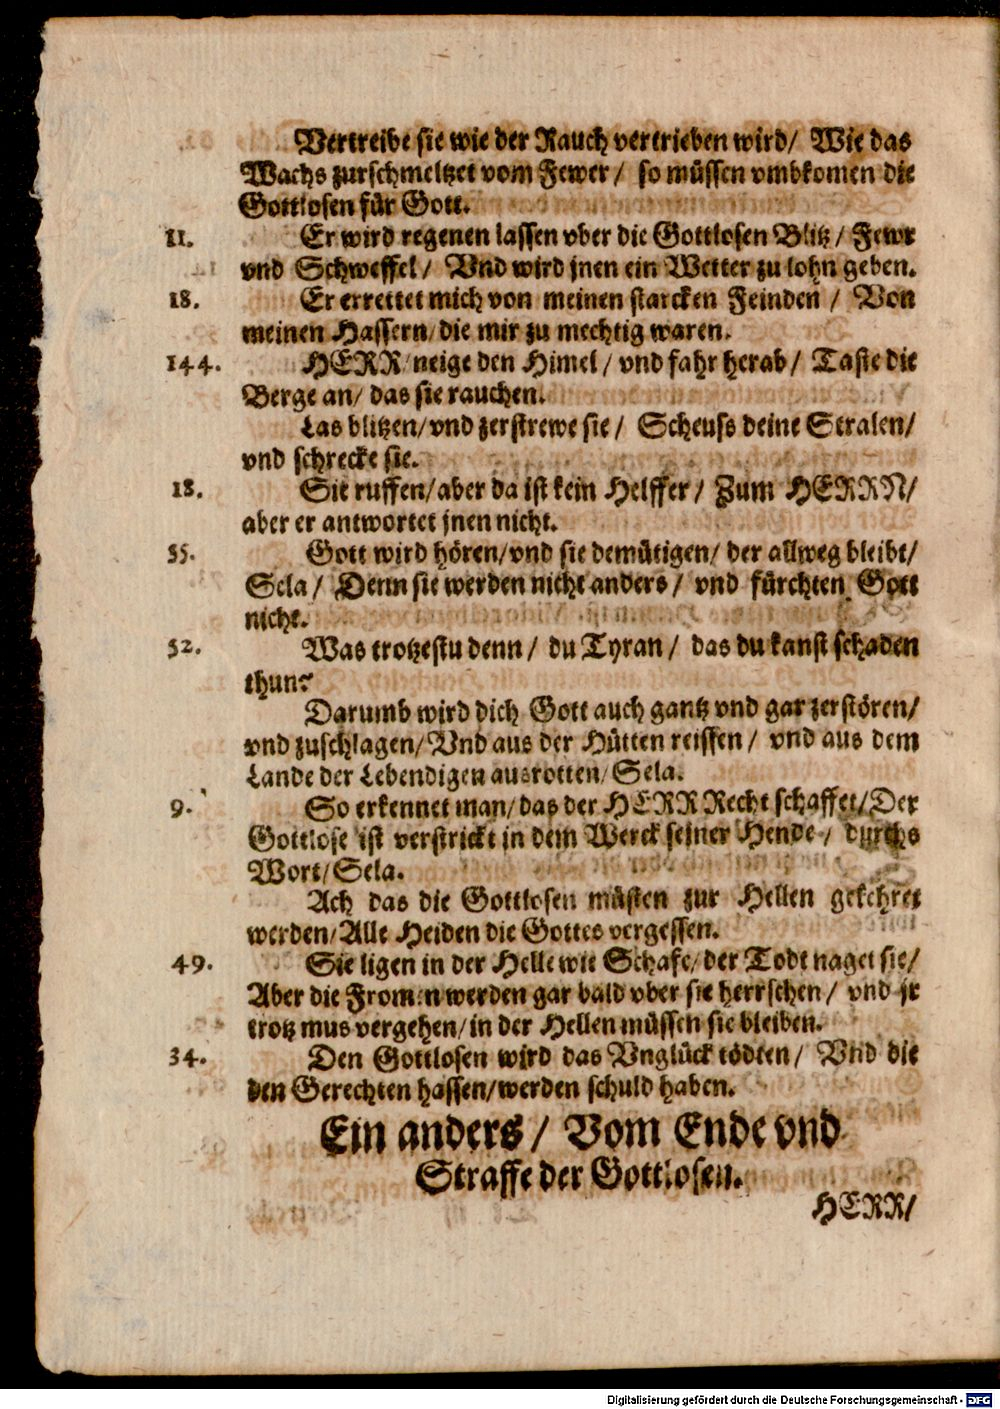 Vertreibe sie wie der Rauch vertrieben wird/ Wie das
Wachs zurschmeltzet vom Fewer/ so müssen vmbkomen die
Gottlosen für Gott.
11. Er wird regenen lassen vber die Gottlosen Blitz/ Fewr
vnd Schweffel/ Vnd wird jnen ein Wetter zu lohn geben.
18. Er errettet mich von meinen starcken Feinden/ Von
meinen Hassern/ die mir zu mechtig waren.
144. HERR/ neige den Himel/ vnd fahr herab/ Taste die
Berge an/ das sie rauchen.
Las blitzen/ vnd zerstrewe sie/ Scheuss deine Stralen/
vnd schrecke sie.
18. Sie ruffen/ aber da ist kein Helffer/ Zum HERRN/
aber er antwortet jnen nicht.
55. Gott wird hören/ vnd sie demütigen/ der allweg bleibt/
Sela/ Denn sie werden nicht anders/ vnd fürchten Gott
nicht.
52. Was trotzestu denn/ du Tyran/ das du kanst schaden
thun?
Darumb wird dich Gott auch gantz vnd gar zerstören/
vnd zuschlagen/ Vnd aus der Hütten reissen/ vnd aus dem
Lande der Lebendigen ausrotten/ Sela.
9. So erkennet man/ das der HERR Recht schaffet/ Der
Gottlose ist verstrickt in dem Werck seiner Hende/ durchs
Wort/ Sela.
Ach das die Gottlosen müsten zur Hellen gekehret
werden/ Alle Heiden die Gottes vergessen.
49. Sie ligen in der Helle wie Schafe/ der Todt naget sie/
Aber die Fromen werden gar bald vber sie herrschen/ vnd jr
trotz mus vergehen/ in der Hellen müssen sie bleiben.
34. Den Gottlosen wird das Vnglück tödten/ Vnd die
den Gerechten hassen/ werden schuld haben.
Ein anders/ Vom Ende vnd
Straffe der Gottlosen.
HERR/
Digitalisierung gefördert durch die Deutsche Forschungsgemeinschaft - DFG